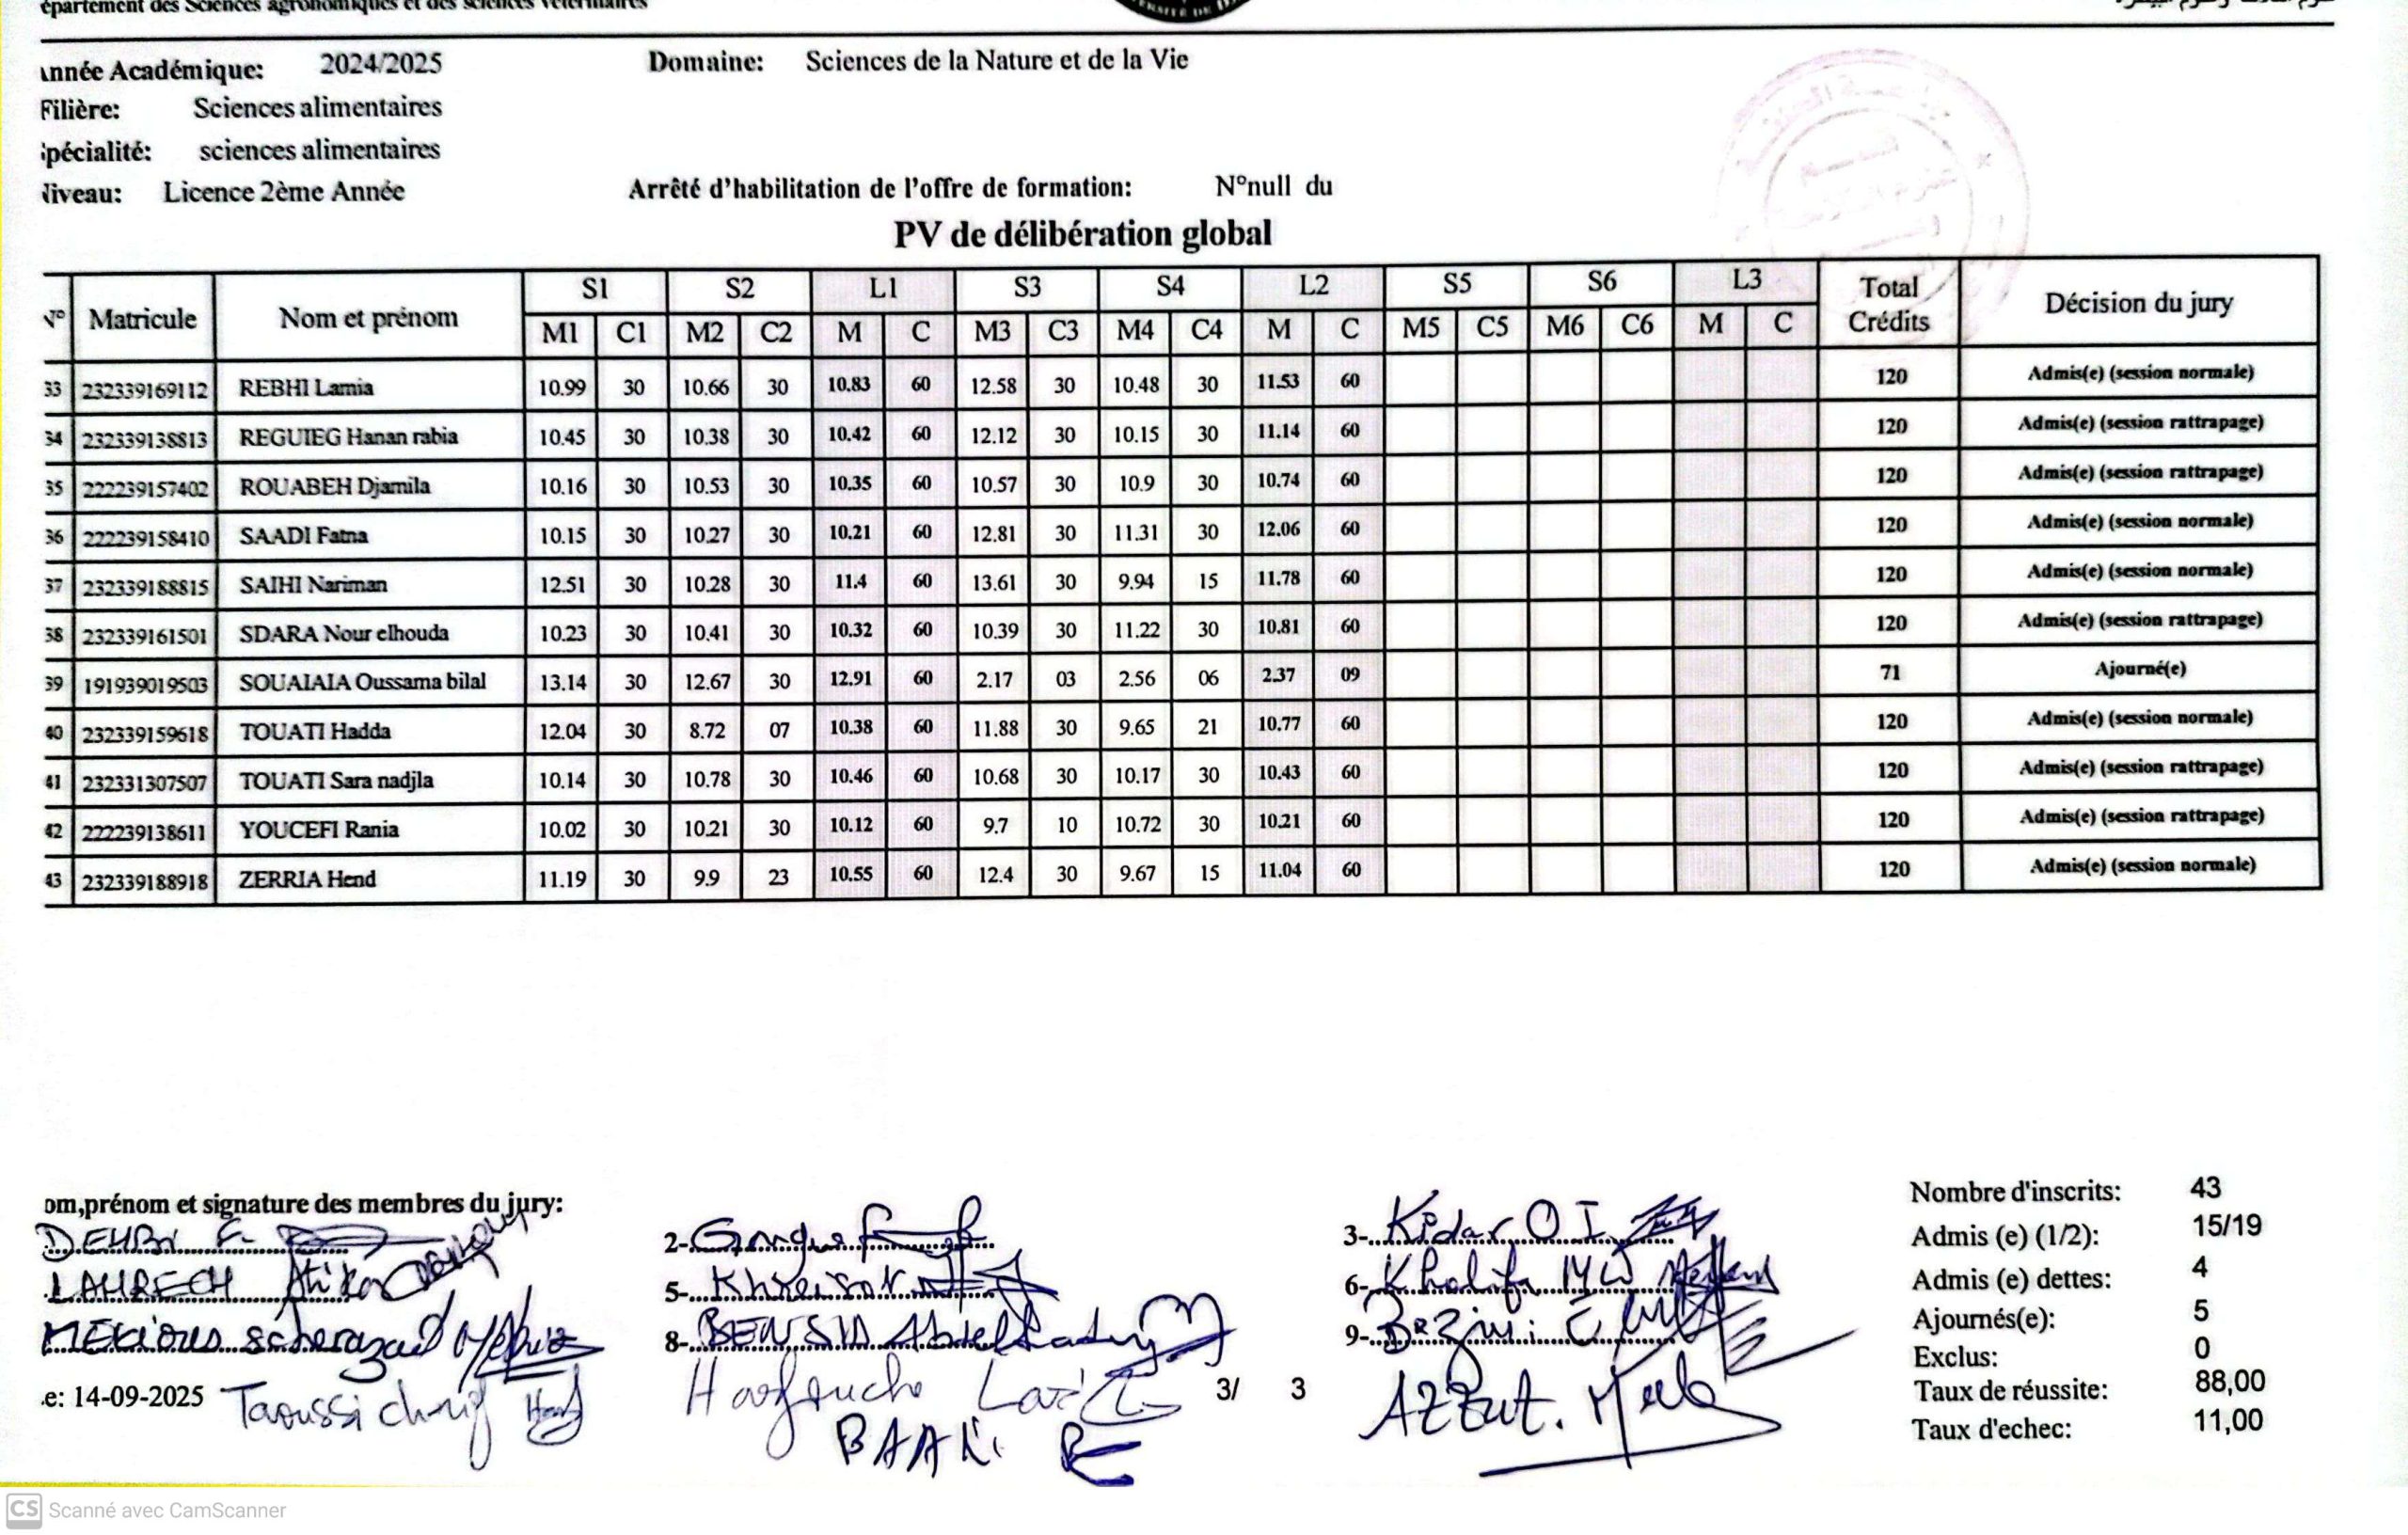 épartement des Sciences agronomiques et des sciences vétérinaires
nnée Académique: 2024/2025 Domaine: Sciences de la Nature et de la Vie
Filière: Sciences alimentaires
pécialité: sciences alimentaires
iveau: Licence 2ème Année Arrêté d'habilitation de l'offre de formation: N°null du
PV de délibération global
N° Matricule Nom et prénom S1 S2 L1 S3 S4 L2 S5 S6 L3 Total Crédits Décision du jury
M1 C1 M2 C2 M C M3 C3 M4 C4 M C M5 C5 M6 C6 M C
33 232339169112 REBHI Lamia 10.99 30 10.66 30 10.83 60 12.58 30 10.48 30 11.53 60 120 Admis(e) (session normale)
34 232339138813 REGUIEG Hanan rabia 10.45 30 10.38 30 10.42 60 12.12 30 10.15 30 11.14 60 120 Admis(e) (session rattrapage)
35 222239157402 ROUABEH Djamila 10.16 30 10.53 30 10.35 60 10.57 30 10.9 30 10.74 60 120 Admis(e) (session rattrapage)
36 222239158410 SAADI Fatna 10.15 30 10.27 30 10.21 60 12.81 30 11.31 30 12.06 60 120 Admis(e) (session normale)
37 232339188815 SAIHI Nariman 12.51 30 10.28 30 11.4 60 13.61 30 9.94 15 11.78 60 120 Admis(e) (session normale)
38 232339161501 SDARA Nour elhouda 10.23 30 10.41 30 10.32 60 10.39 30 11.22 30 10.81 60 120 Admis(e) (session rattrapage)
39 191939019503 SOUAIAIA Oussama bilal 13.14 30 12.67 30 12.91 60 2.17 03 2.56 06 2.37 09 71 Ajourné(e)
40 232339159618 TOUATI Hadda 12.04 30 8.72 07 10.38 60 11.88 30 9.65 21 10.77 60 120 Admis(e) (session normale)
41 232331307507 TOUATI Sara nadjla 10.14 30 10.78 30 10.46 60 10.68 30 10.17 30 10.43 60 120 Admis(e) (session rattrapage)
42 222239138611 YOUCEFI Rania 10.02 30 10.21 30 10.12 60 9.7 10 10.72 30 10.21 60 120 Admis(e) (session rattrapage)
43 232339188918 ZERRIA Hend 11.19 30 9.9 23 10.55 60 12.4 30 9.67 15 11.04 60 120 Admis(e) (session normale)
om,prénom et signature des membres du jury:
DEHBI F. 2- 3- Kidar O I
LAHRECH Atika 5- 6- Khalifa
MEKIOUS scherazad 8- BENSID Abdelkader 9-
e: 14-09-2025 Taoussi 3/ 3
BAAKi
Nombre d'inscrits: 43
Admis (e) (1/2): 15/19
Admis (e) dettes: 4
Ajournés(e): 5
Exclus: 0
Taux de réussite: 88,00
Taux d'echec: 11,00
CS Scanné avec CamScanner